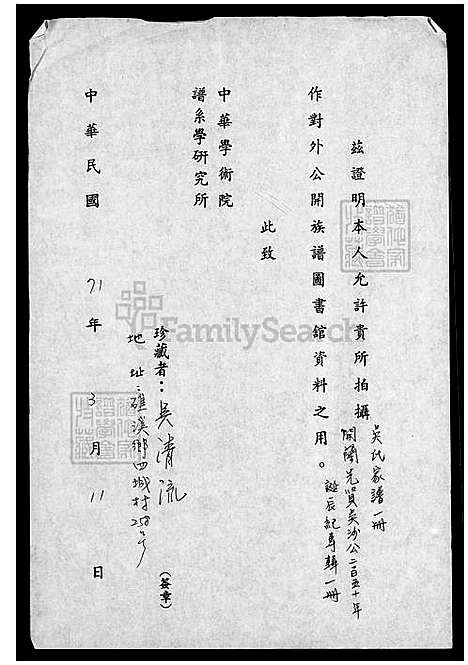 茲證明本人允許貴所拍攝 吳氏家譜一冊
開蘭先賢吳沙公二百五十年
誕辰紀專輯一冊
作對外公開族譜圖書館資料之用。
此致
中華學術院
譜系學研究所
珍藏者：吳清流
地址：礁溪鄉四城村258号
（簽章）
中華民國 71 年 3 月 11 日
FamilySearch